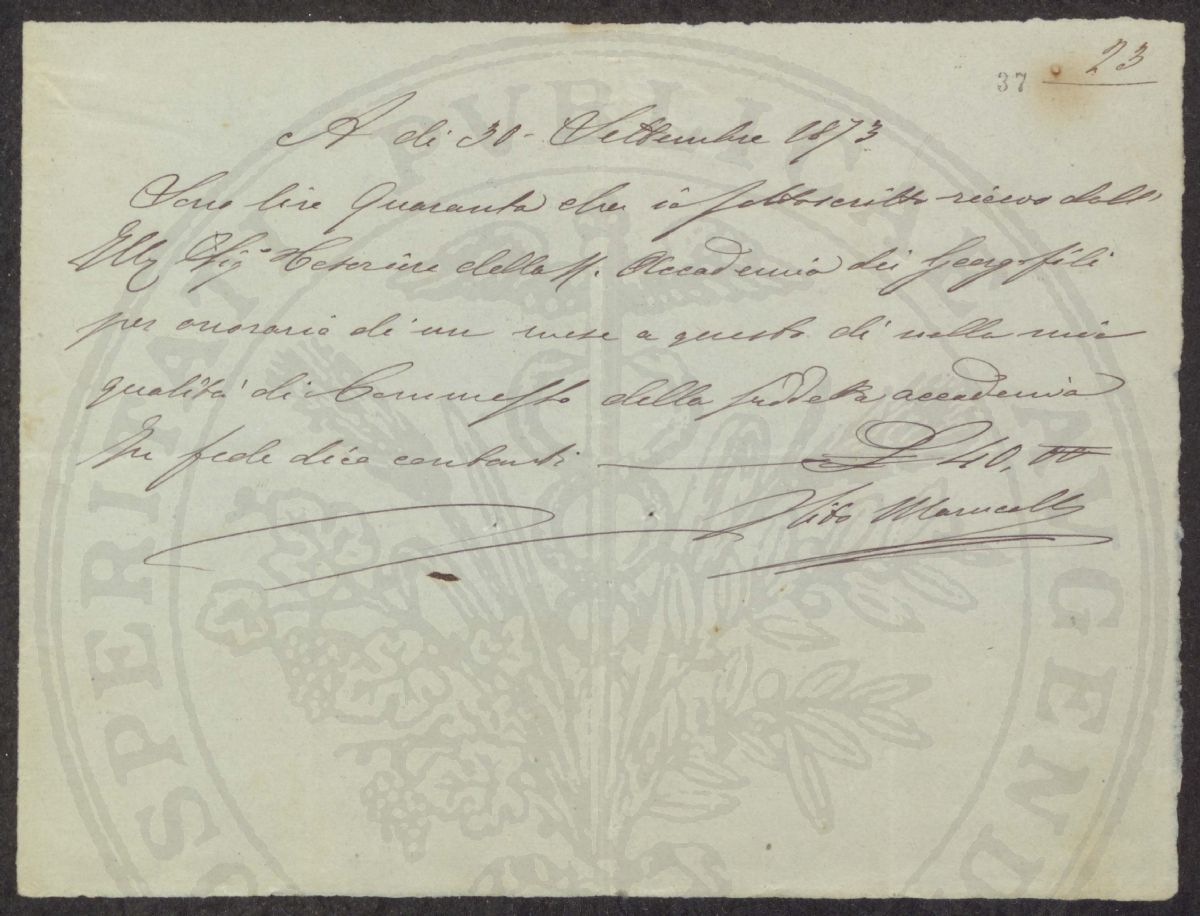 23
37
A di 30 - Settembre 1873
Sono lire Quaranta che io sottoscritto ricevo dall'
Ill Sig.e Tesoriere della R. Accademia dei Georgofili
per onorario di un mese a questo dì nella mia
qualità di Commesso della suddetta accademia
In fede dico contanti — £ 40, 00
Marucelli
PROSPERITATI PVBLICAE AVGENDAE